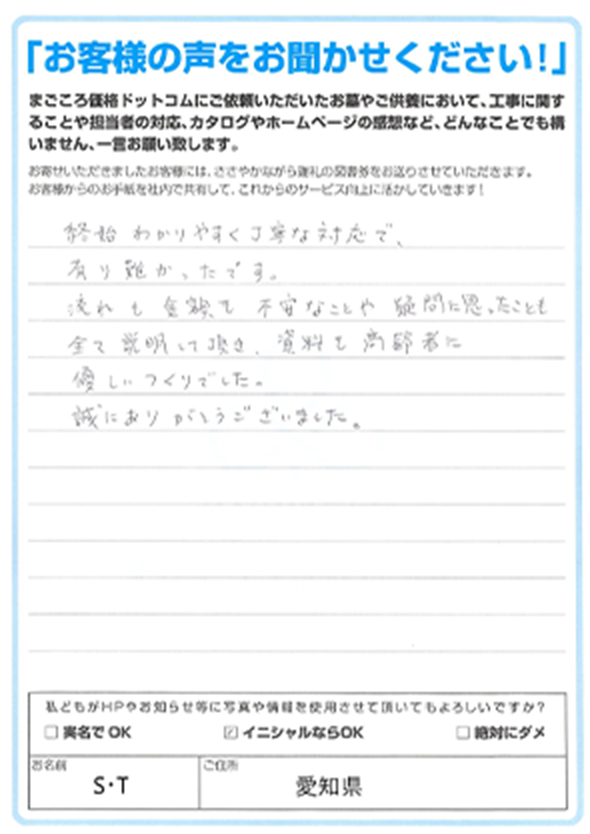 「お客様の声をお聞かせください!」
まごころ価格ドットコムにご依頼いただいたお墓やご供養において、工事に関す
ることや担当者の対応、カタログやホームページの感想など、どんなことでも構
いません、一言お願い致します。
お寄せいただきましたお客様には、ささやかながら謝礼の図書券をお送りさせていただきます。
お客様からのお手紙を社内で共有して、これからのサービス向上に活かしていきます!
終始 わかりやすく丁寧な対応で、
有り難かったです。
流れも金額も不安なことや疑問に思ったことも
全て説明して頂き、資料も高齢者に
優しいつくりでした。
誠にありがとうございました。
私どもがHPやお知らせ等に写真や情報を使用させて頂いてもよろしいですか?
□ 実名でOK ☑ イニシャルならOK □ 絶対にダメ
お名前 ご住所
S・T 愛知県